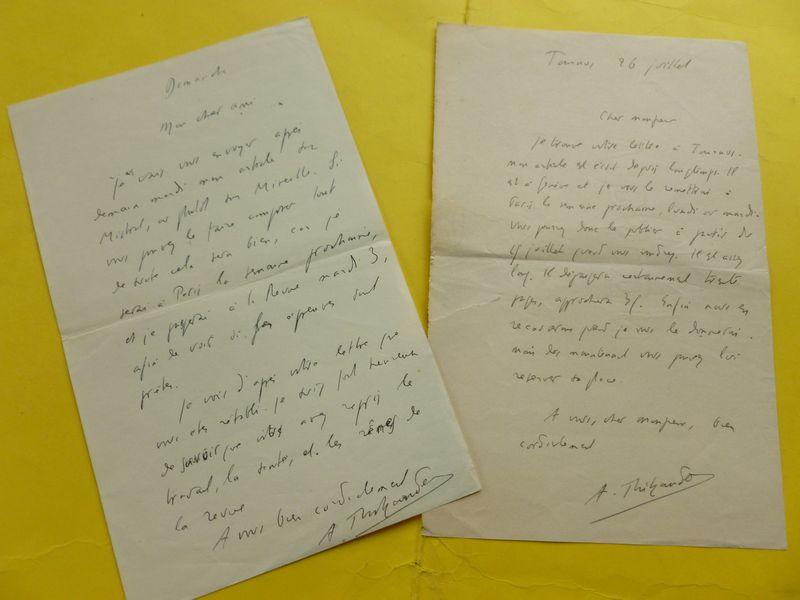 Dimanche
Mon cher ami
Je vais vous envoyer après
demain mardi mon article sur
Mistral, ou plutôt sur Mireille. Si
vous pouvez le faire composer tout
de suite cela sera bien, car je
serai à Paris la semaine prochaine,
et je passerai à la Revue mardi 3,
afin de voir si les épreuves sont
prêtes.
Je vois d'après votre lettre que
vous êtes rétabli. Je suis fort heureux
de savoir que vous avez repris le
travail, la santé, et les rênes de
la revue
A vous bien cordialement
A. Thibaudet
Tournus 26 juillet
Cher monsieur
Je trouve votre lettre à Tournus.
mon article est écrit depuis longtemps. Il
est à Genève et je vous le remettrai à
Paris la semaine prochaine, lundi ou mardi.
vous pouvez donc le publier à partir du
15 juillet quand vous voudrez. Il est assez
long. Il dépassera certainement trente
pages, approchera 35. Enfin nous en
recauserons quand je vous le donnerai.
mais dès maintenant vous pouvez lui
réserver sa place.
A vous, cher monsieur, bien
cordialement
A. Thibaudet